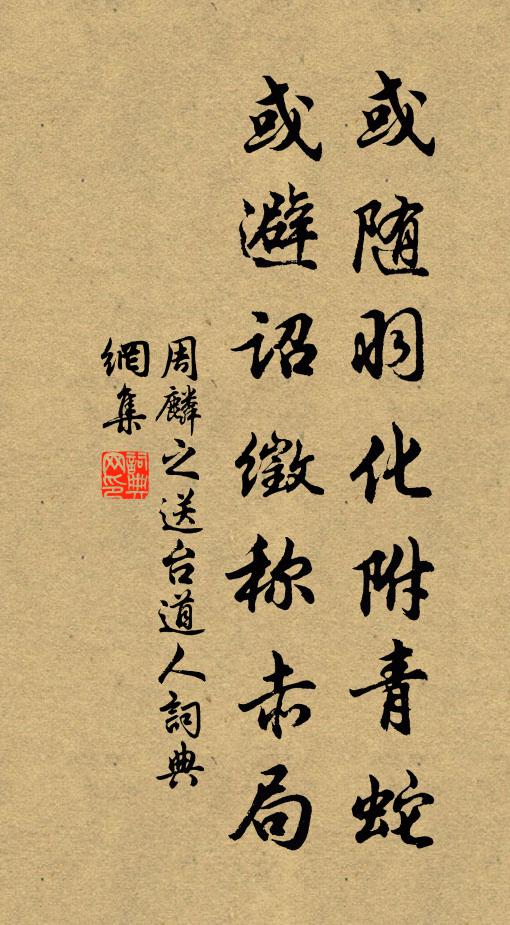 或随羽化附青蛇
或避诏徵称赤局
周麟之送台道人詞典
網集
詞典网印